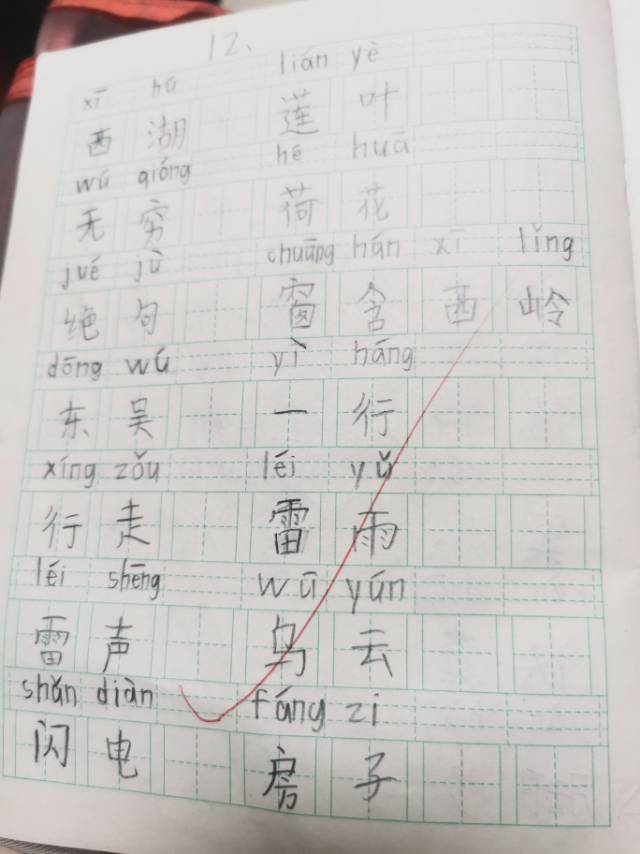 12、
xī hú lián yè
西湖 莲叶
wú qióng hé huā
无穷 荷花
jué jù chuāng hán xī lǐng
绝句 窗含西岭
dōng wú yì háng
东吴 一行
xíng zǒu léi yǔ
行走 雷雨
léi shēng wū yún
雷声 乌云
shǎn diàn fáng zi
闪电 房子